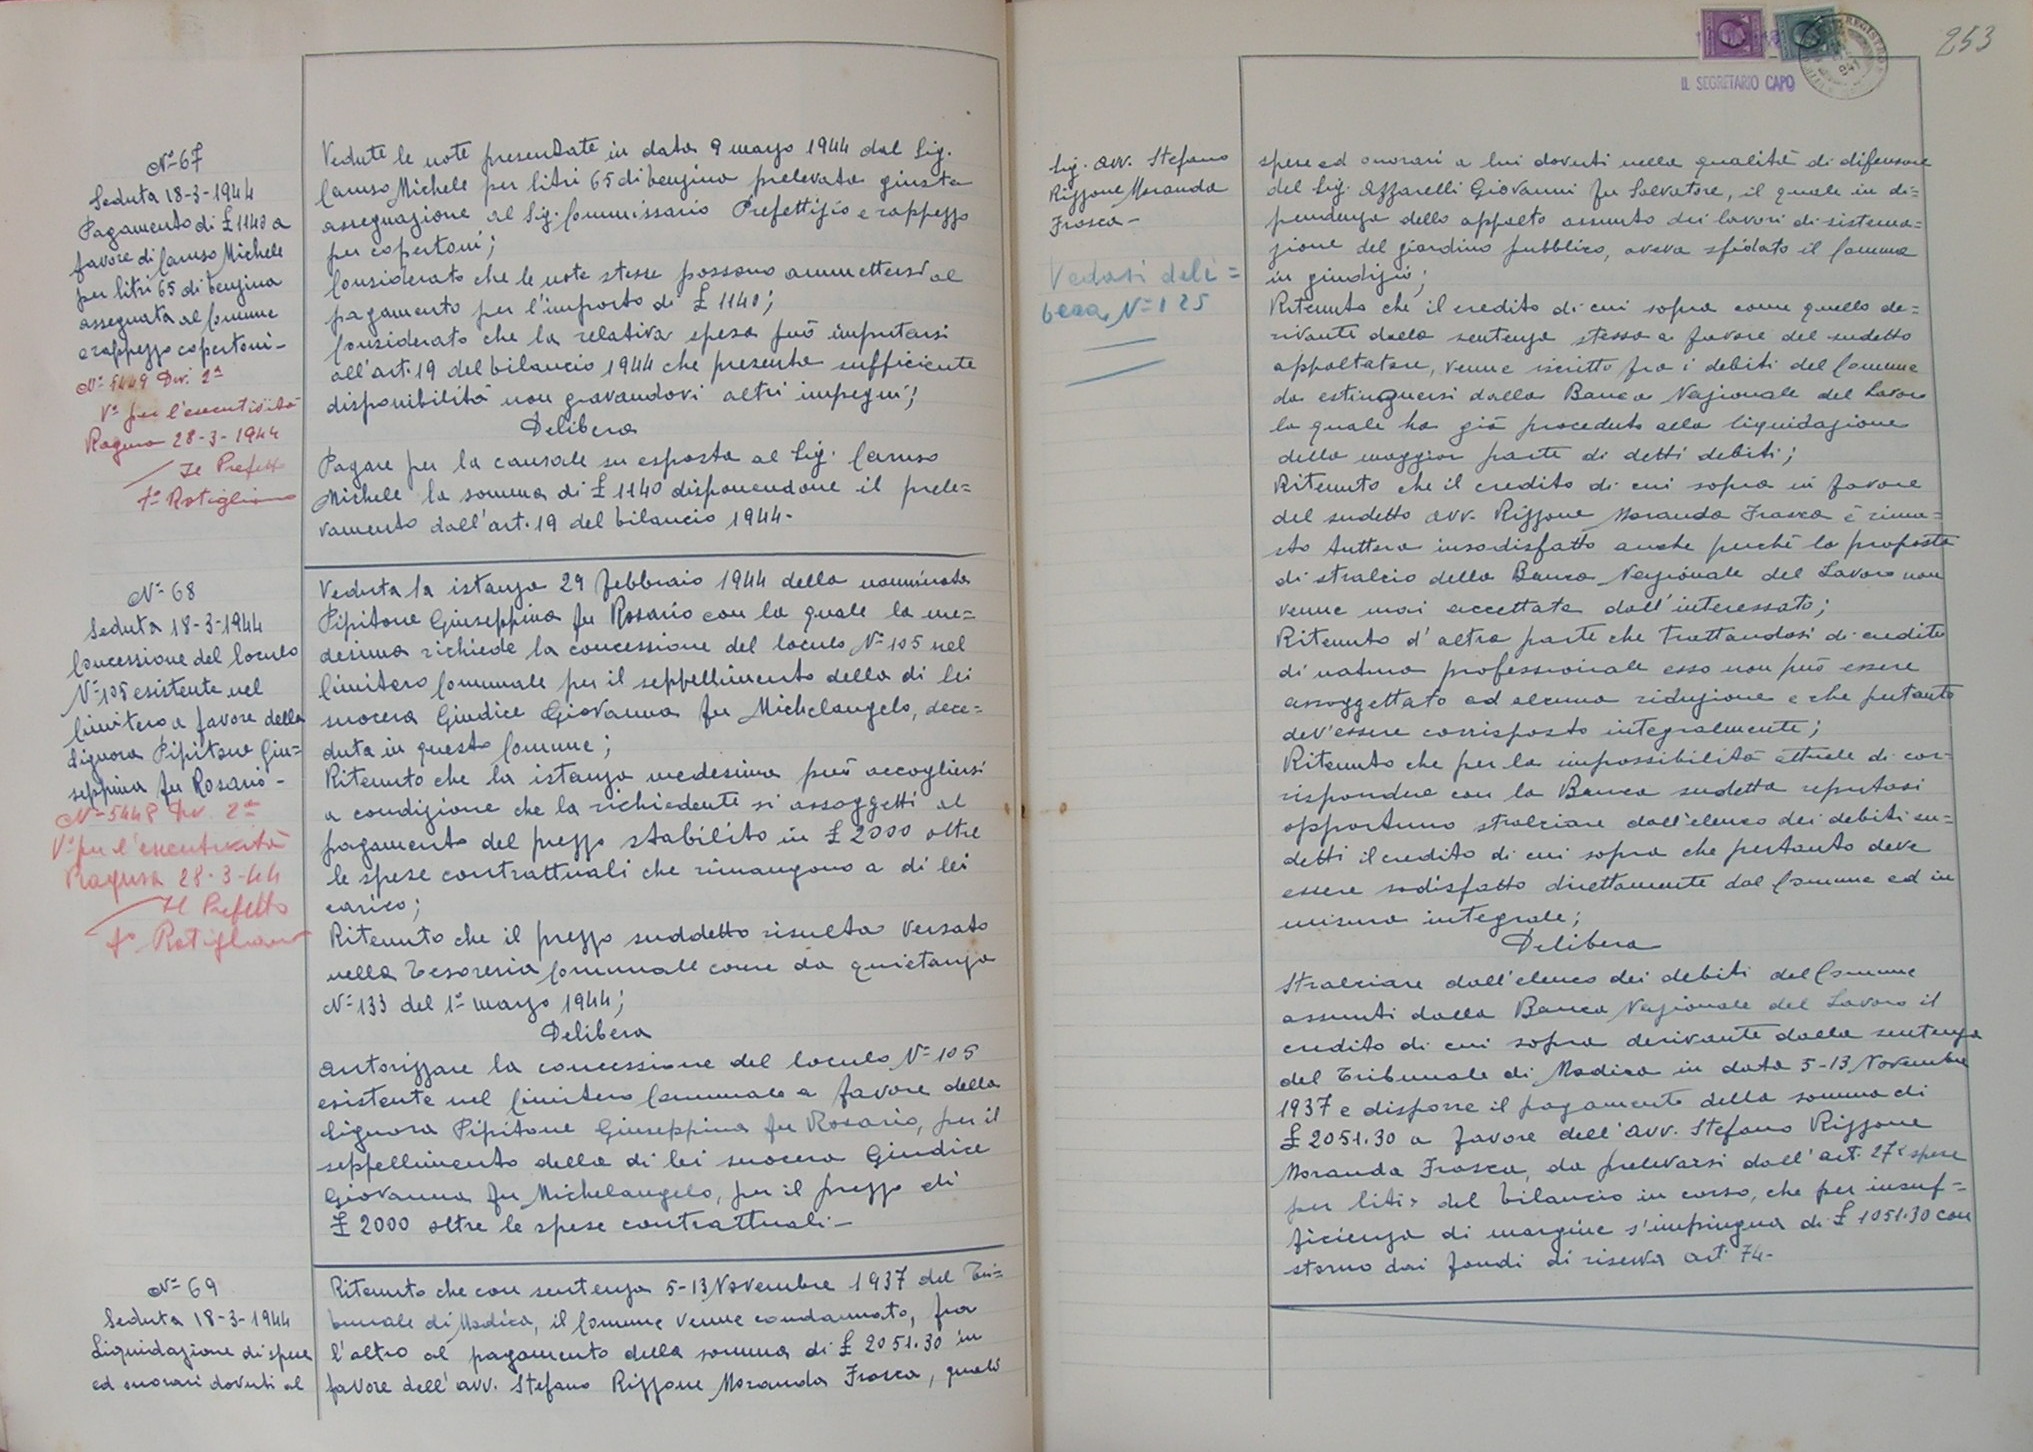 N° 67
Seduta 18-3-1944
Pagamento di £ 1140 a
favore di Caruso Michele
per litri 65 di benzina
assegnata al Comune
e rappezzo copertoni-
N° 5449 Div. 2ª
V° per l'esecutività
Ragusa 28-3-1944
Il Prefetto
Fº Rotigliano
Vedute le note presentate in data 9 marzo 1944 dal Sig.
Caruso Michele per litri 65 di benzina prelevata giusta
assegnazione al Sig. Commissario Prefettizio e rappezzo
per copertoni;
Considerato che le note stesse possono ammettersi al
pagamento per l'importo di £ 1140;
Considerato che la relativa spesa può imputarsi
all'art. 19 del bilancio 1944 che presenta sufficiente
disponibilità non gravandovi altri impegni;
Delibera
Pagare per la causale su esposta al Sig. Caruso
Michele la somma di £ 1140 disponendone il prele=
vamento dall'art. 19 del bilancio 1944-
N° 68
Seduta 18-3-1944
Concessione del loculo
N° 105 esistente nel
Cimitero a favore della
Signora Pipitone Giu=
seppina fu Rosario-
N° 5448 Div. 2ª
V° per l'esecutività
Ragusa 28-3-44
Il Prefetto
Fº Rotigliano
Veduta la istanza 29 febbraio 1944 della nominata
Pipitone Giuseppina fu Rosario con la quale la me=
desima richiede la concessione del loculo N° 105 nel
Cimitero Comunale per il seppellimento della di lei
suocera Giudice Giovanna fu Michelangelo, dece=
duta in questo Comune;
Ritenuto che la istanza medesima può accogliersi
a condizione che la richiedente si assoggetti al
pagamento del prezzo stabilito in £ 2000 oltre
le spese contrattuali che rimangono a di lei
carico;
Ritenuto che il prezzo suddetto risulta versato
nella Tesoreria Comunale come da quietanza
N° 133 del 1° marzo 1944;
Delibera
Autorizzare la concessione del loculo N° 105
esistente nel Cimitero Comunale a favore della
Signora Pipitone Giuseppina fu Rosario, per il
seppellimento della di lei suocera Giudice
Giovanna fu Michelangelo, per il prezzo di
£ 2000 oltre le spese contrattuali-
N° 69
Seduta 18-3-1944
Liquidazione di spese
ed onorari dovuti al
Ritenuto che con sentenza 5-13 Novembre 1937 del Tri=
bunale di Modica, il Comune venne condannato, fra
l'altro al pagamento della somma di £ 2051.30 in
favore dell'avv. Stefano Rizzone Moranda Frasca, quali
253
IL SEGRETARIO CAPO
Sig. avv. Stefano
Rizzone Moranda
Frasca-
Vedasi deli=
bera N° 125
spese ed onorari a lui dovuti nella qualità di difensore
del Sig. Azzarelli Giovanni fu Salvatore, il quale in di=
pendenza dello appalto assunto dei lavori di sistema=
zione del giardino pubblico, aveva sfidato il Comune
in giudizio;
Ritenuto che il credito di cui sopra come quello de=
rivante dalla sentenza stessa a favore del sudetto
appaltatore, venne iscritto fra i debiti del Comune
da estinguersi dalla Banca Nazionale del Lavoro
la quale ha già proceduto alla liquidazione
della maggior parte di detti debiti;
Ritenuto che il credito di cui sopra in favore
del sudetto avv. Rizzone Moranda Frasca è rima=
sto tuttora insodisfatto anche perchè la proposta
di stralcio della Banca Nazionale del Lavoro non
venne mai accettata dall'interessato;
Ritenuto d'altra parte che trattandosi di credito
di natura professionale esso non può essere
assoggettato ad alcuna riduzione e che pertanto
dev'essere corrisposto integralmente;
Ritenuto che per la impossibilità attuale di cor=
rispondere con la Banca sudetta reputasi
opportuno stralciare dall'elenco dei debiti su=
detti il credito di cui sopra che pertanto deve
essere sodisfatto direttamente dal Comune ed in
misura integrale;
Delibera
Stralciare dall'elenco dei debiti del Comune
assunti dalla Banca Nazionale del Lavoro il
credito di cui sopra derivante dalla sentenza
del Tribunale di Modica in data 5-13 Novembre
1937 e disporre il pagamento della somma di
£ 2051.30 a favore dell'avv. Stefano Rizzone
Moranda Frasca, da prelevarsi dall'art. 27 "spese
per liti" del bilancio in corso, che per insuf=
ficienza di margine s'impingua di £ 1051.30 con
storno dai fondi di riserva art. 74-